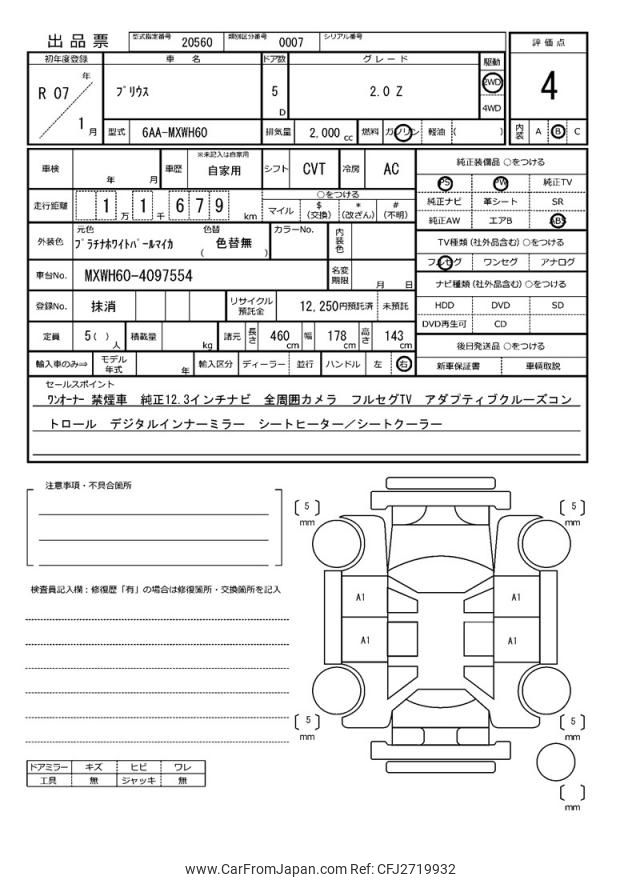 出品票 型式指定番号 20560 類別区分番号 0007 シリアル番号
評価点
4
内装 A B C
初年度登録 車名 ドア数 グレード 駆動
R 07 年 1 月
プリウス
5 D
2.0 Z
2WD
4WD
型式 6AA-MXWH60 排気量 2,000 cc 燃料 ガソリン 軽油 ( )
車検 年 月 車歴 ※未記入は自家用 自家用 シフト CVT 冷房 AC
走行距離 1 万 1 千 6 7 9 km
○をつける
マイル $(交換) *(改ざん) #(不明)
外装色 元色 プラチナホワイトパールマイカ 色替 ( 色替無 ) カラーNo. 内装色
車台No. MXWH60-4097554 名変期限 月 日
登録No. 抹消 リサイクル預託金 12,250円預託済 未預託
定員 5( ) 人 積載量 kg 諸元 長さ 460 cm 幅 178 cm 高さ 143 cm
輸入車のみ⇒ モデル年式 年 輸入区分 ディーラー 並行 ハンドル 左 右
純正装備品 ○をつける
PS PW 純正TV
純正ナビ 革シート SR
純正AW エアB ABS
TV種類 (社外品含む) ○をつける
フルセグ ワンセグ アナログ
ナビ種類 (社外品含む) ○をつける
HDD DVD SD
DVD再生可 CD
後日発送品 ○をつける
新車保証書 車輌取説
セールスポイント
ワンオーナー 禁煙車 純正12.3インチナビ 全周囲カメラ フルセグTV アダプティブクルーズコン
トロール デジタルインナーミラー シートヒーター/シートクーラー
注意事項・不具合箇所
検査員記入欄：修復歴「有」の場合は修復箇所・交換箇所を記入
[ 5 ] mm
[ 5 ] mm
A1 A1
A1 A1
[ 5 ] mm
[ 5 ] mm
[ ] mm
ドアミラー キズ ヒビ ワレ
工具 無 ジャッキ 無
www.CarFromJapan.com Ref: CFJ2719932